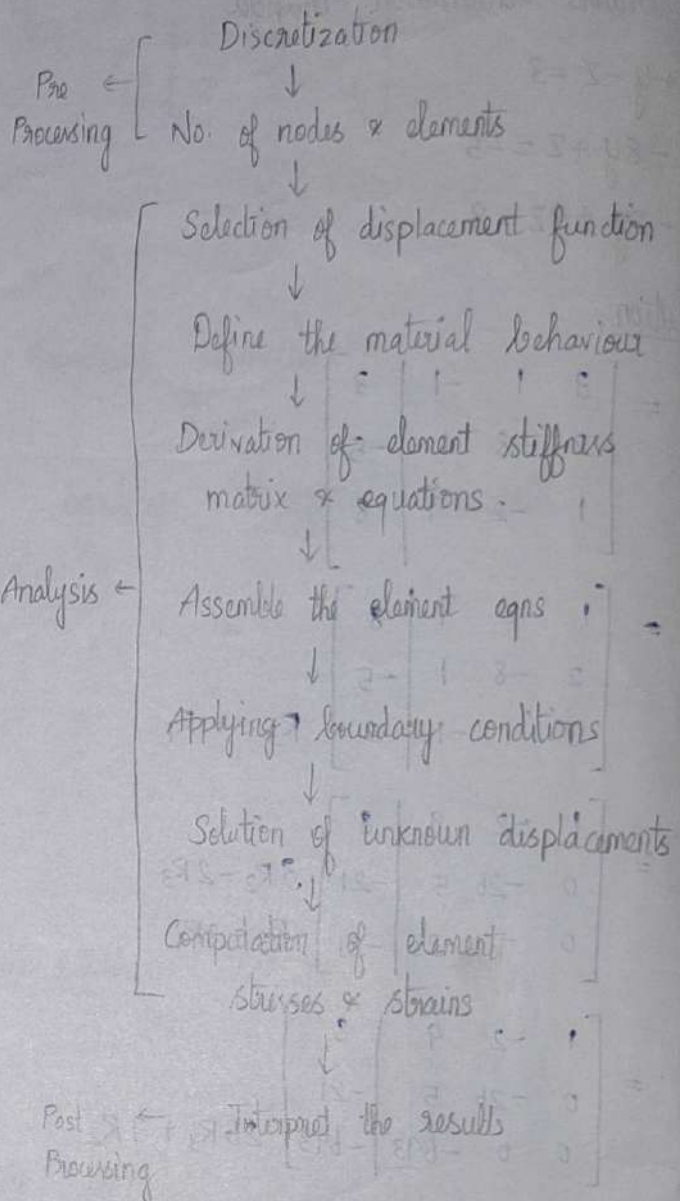 Discretization
↓
Pre Processing ← No. of nodes & elements
↓
Selection of displacement function
↓
Define the material behaviour
↓
Derivation of element stiffness
matrix & equations.
↓
Analysis ← Assemble the element eqns
↓
Applying boundary conditions
↓
Solution of unknown displacements
↓
Computation of element
stresses & strains
↓
Post Processing ← Interpret the results